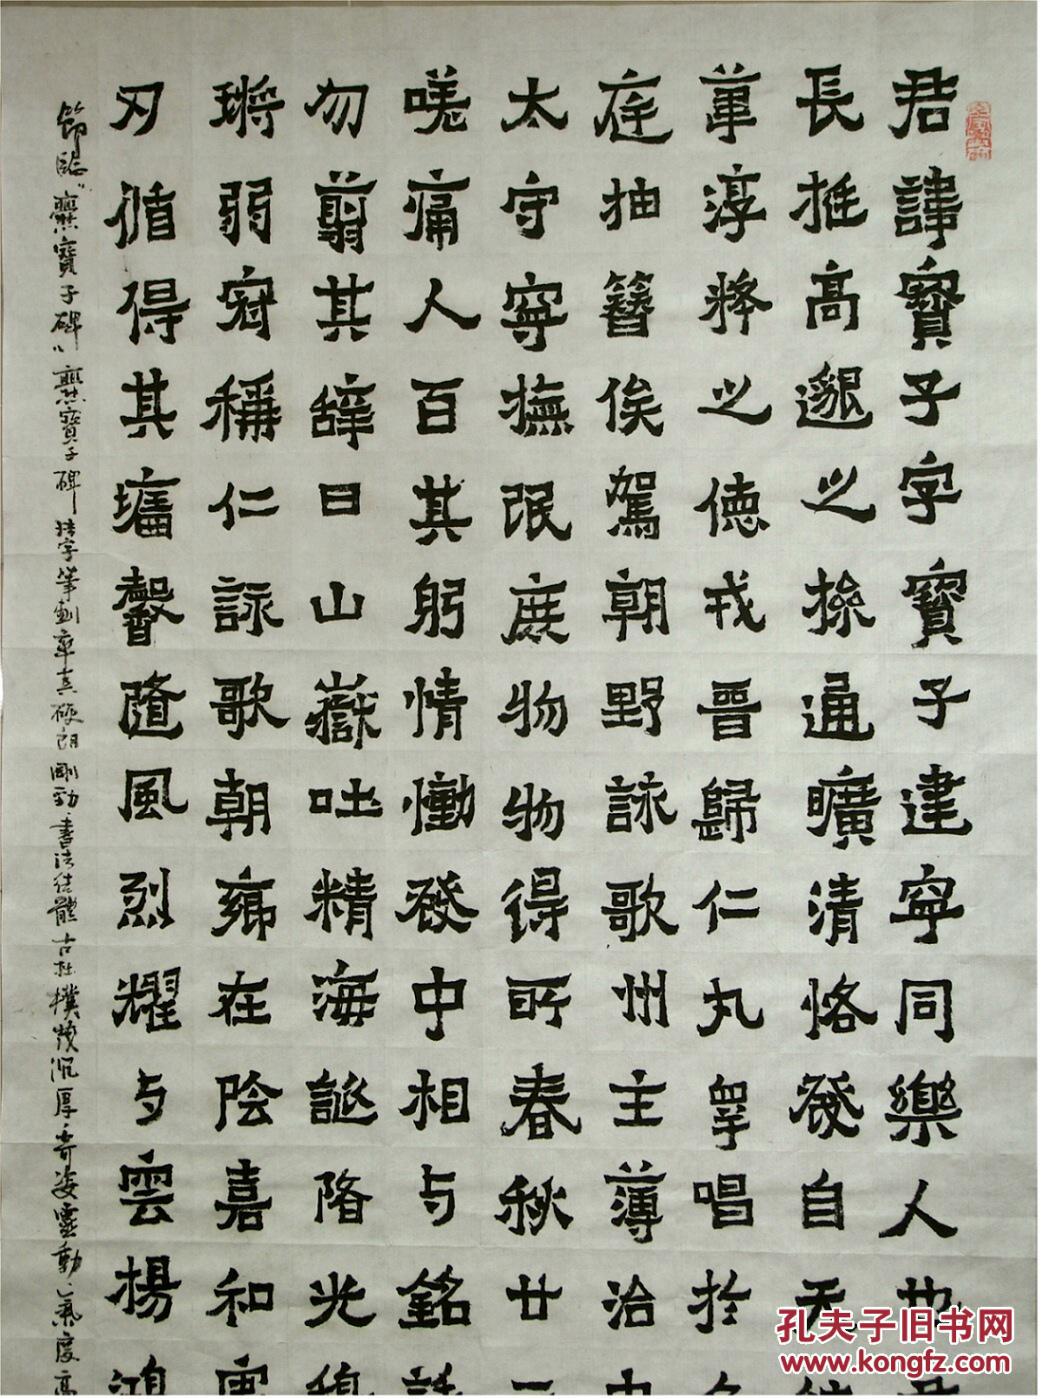 君諱寶子字寶子建寧同樂人也
長挺高邈之操通曠清恪發自天
莘淳將之德戎晉歸仁九皋唱於
庭抽簪俟駕朝野詠歌州主薄治
太守寧撫氓庶物物得所春秋廿
嗟痛人百其躬情慟發中相与銘
勿翦其辭曰山嶽吐精海誕陷光
瑯弱冠稱仁詠歌朝鄉在陰嘉和
刃循得其墻馨隨風烈耀与雲揚
節臨"爨寶子碑"爨寶子碑 筆劃率真硬朗剛勁書法结體古拙樸茂沉厚奇姿靈動氣度高
孔夫子旧书网
www.kongfz.com